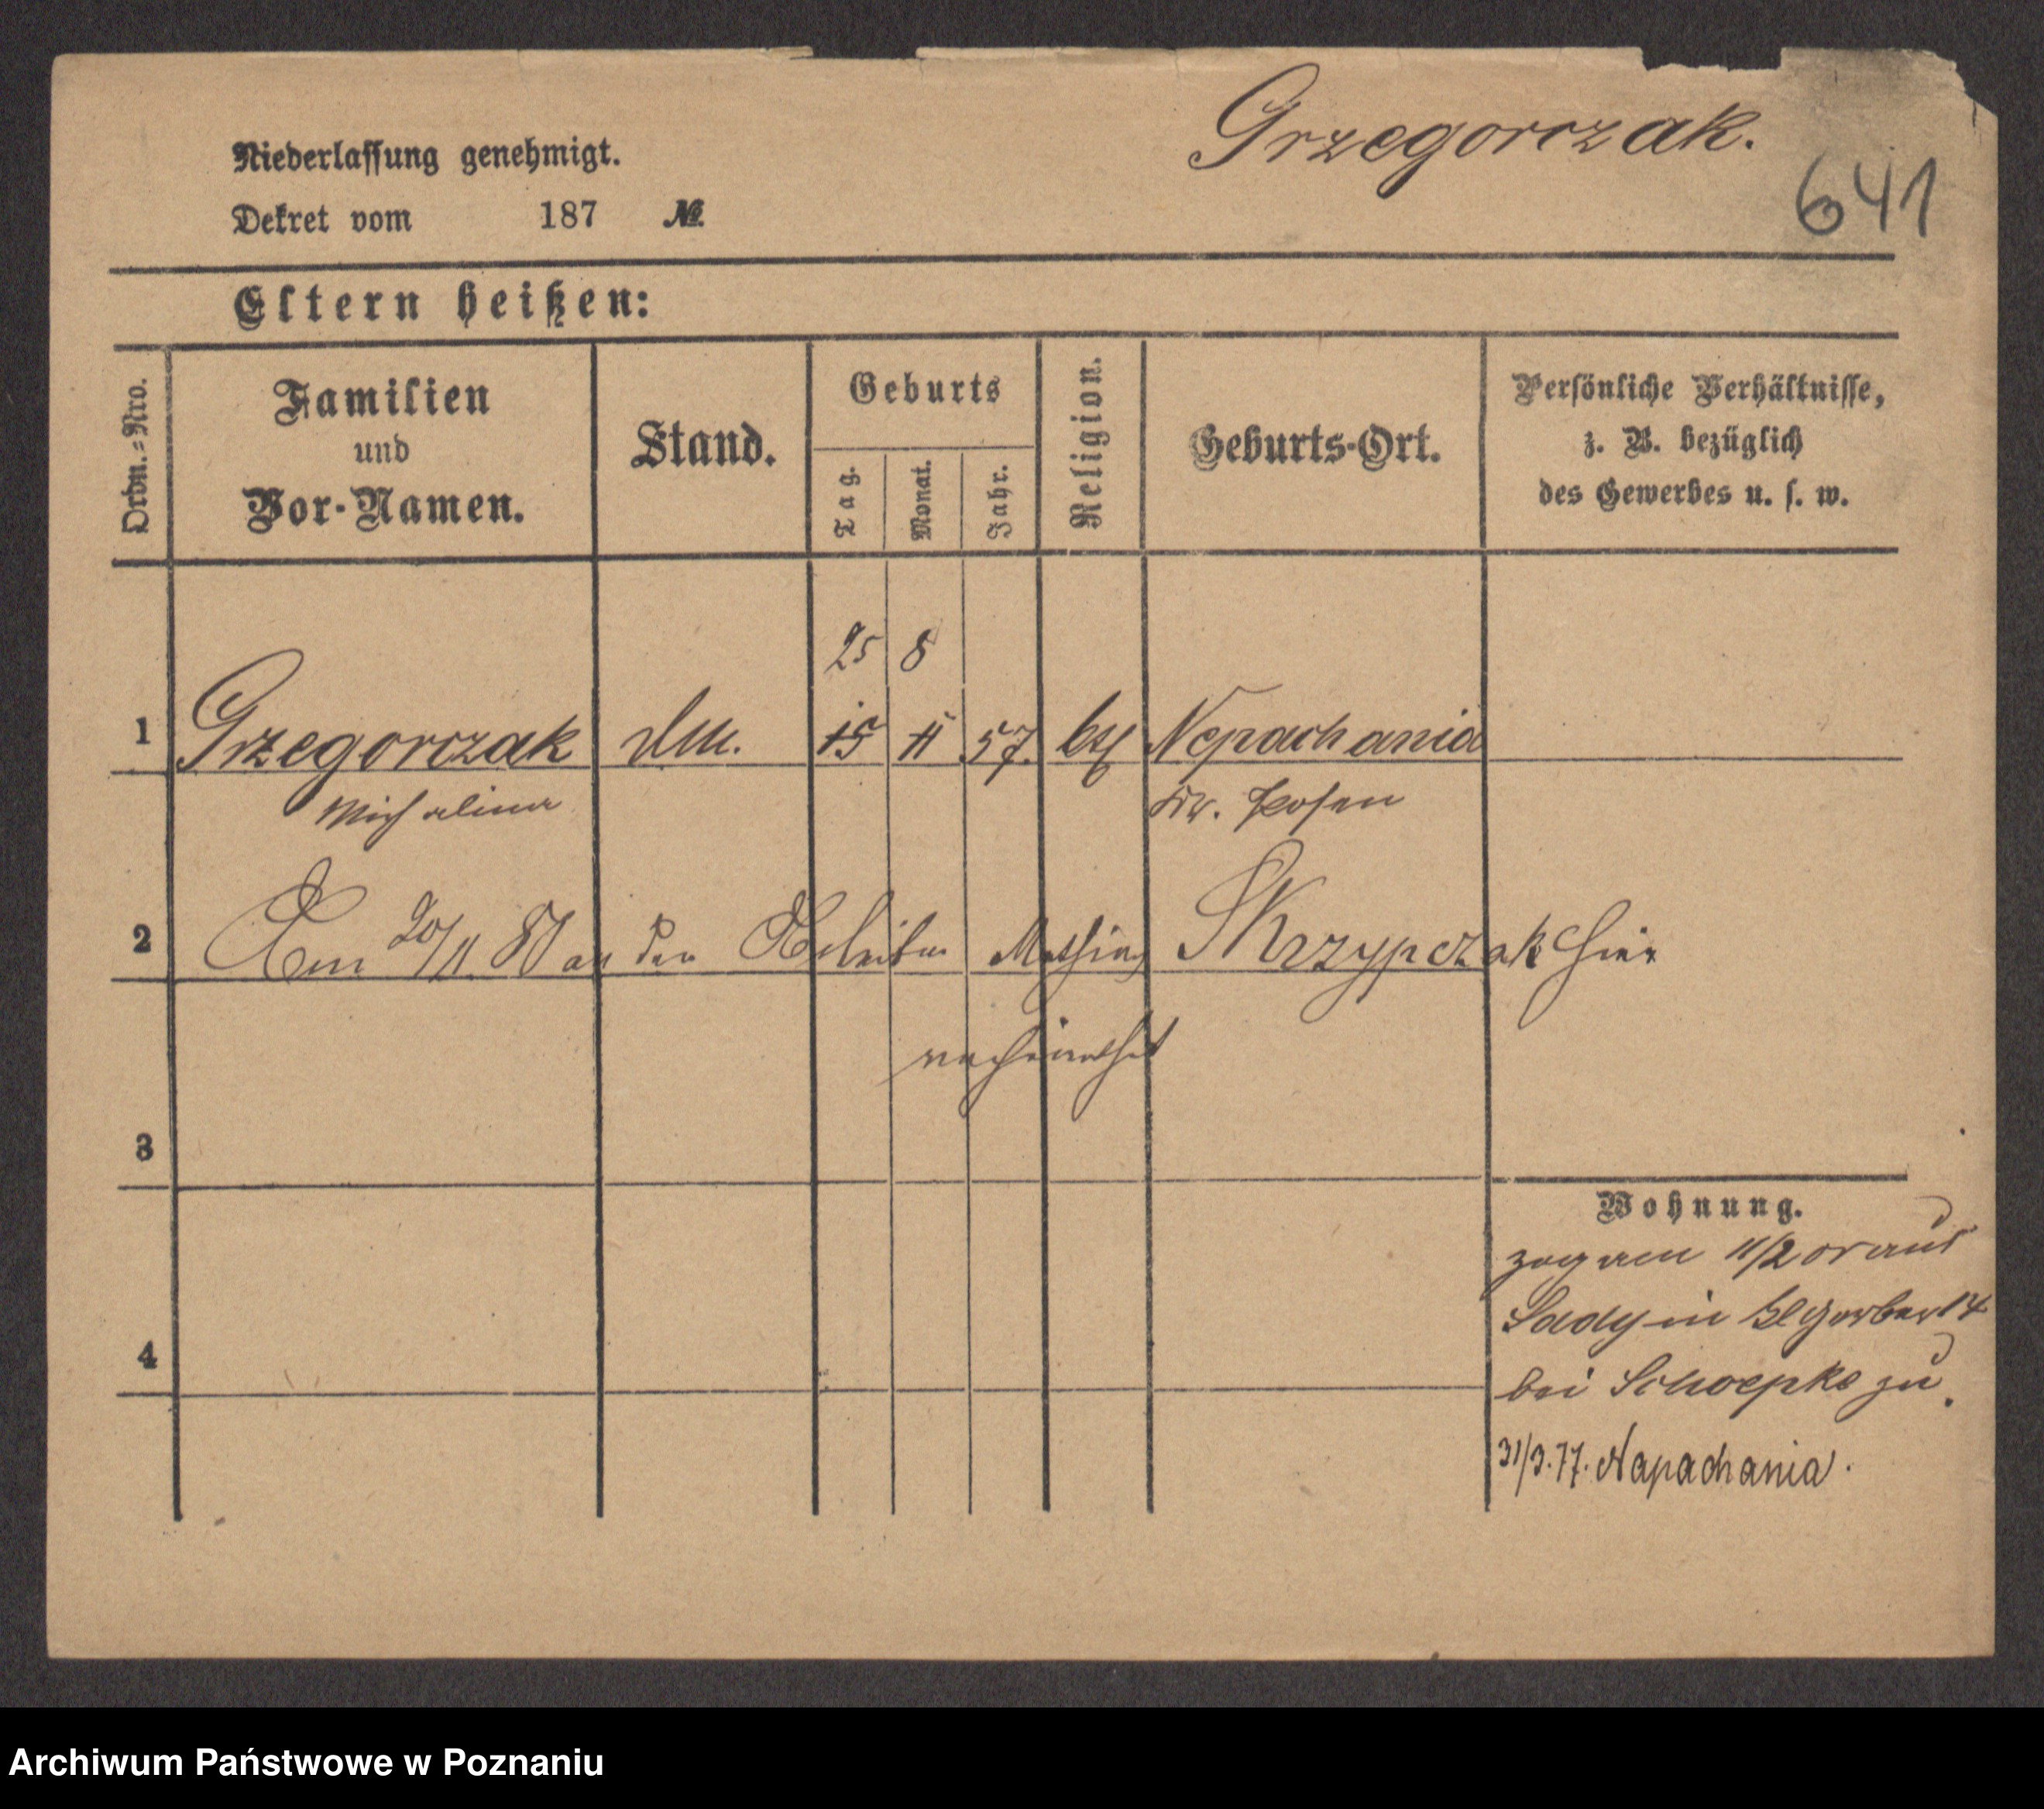 Grzegorczak.
641
Niederlassung genehmigt.
Dekret vom 187 №
Eltern heißen:
Ordn.=Nro.
Familien
und
Vor-Namen.
Stand.
Geburts
Tag.
Monat.
Jahr.
Religion.
Geburts-Ort.
Persönliche Verhältnisse,
z. B. bezüglich
des Gewerbes u. s. w.
25 8
1 Grzegorczak 15 11 57. Napachania
Michalina Kr. Posen
2 Am 20/11 80 an den Arbeiter Mathias Skrzypczak hier
verheirathet
3
4
Wohnung.
zog am 11/2 or aus
Sady in Kl Gerber 14
bei Schoepke zu.
31/3.77. Napachania.
Archiwum Państwowe w Poznaniu